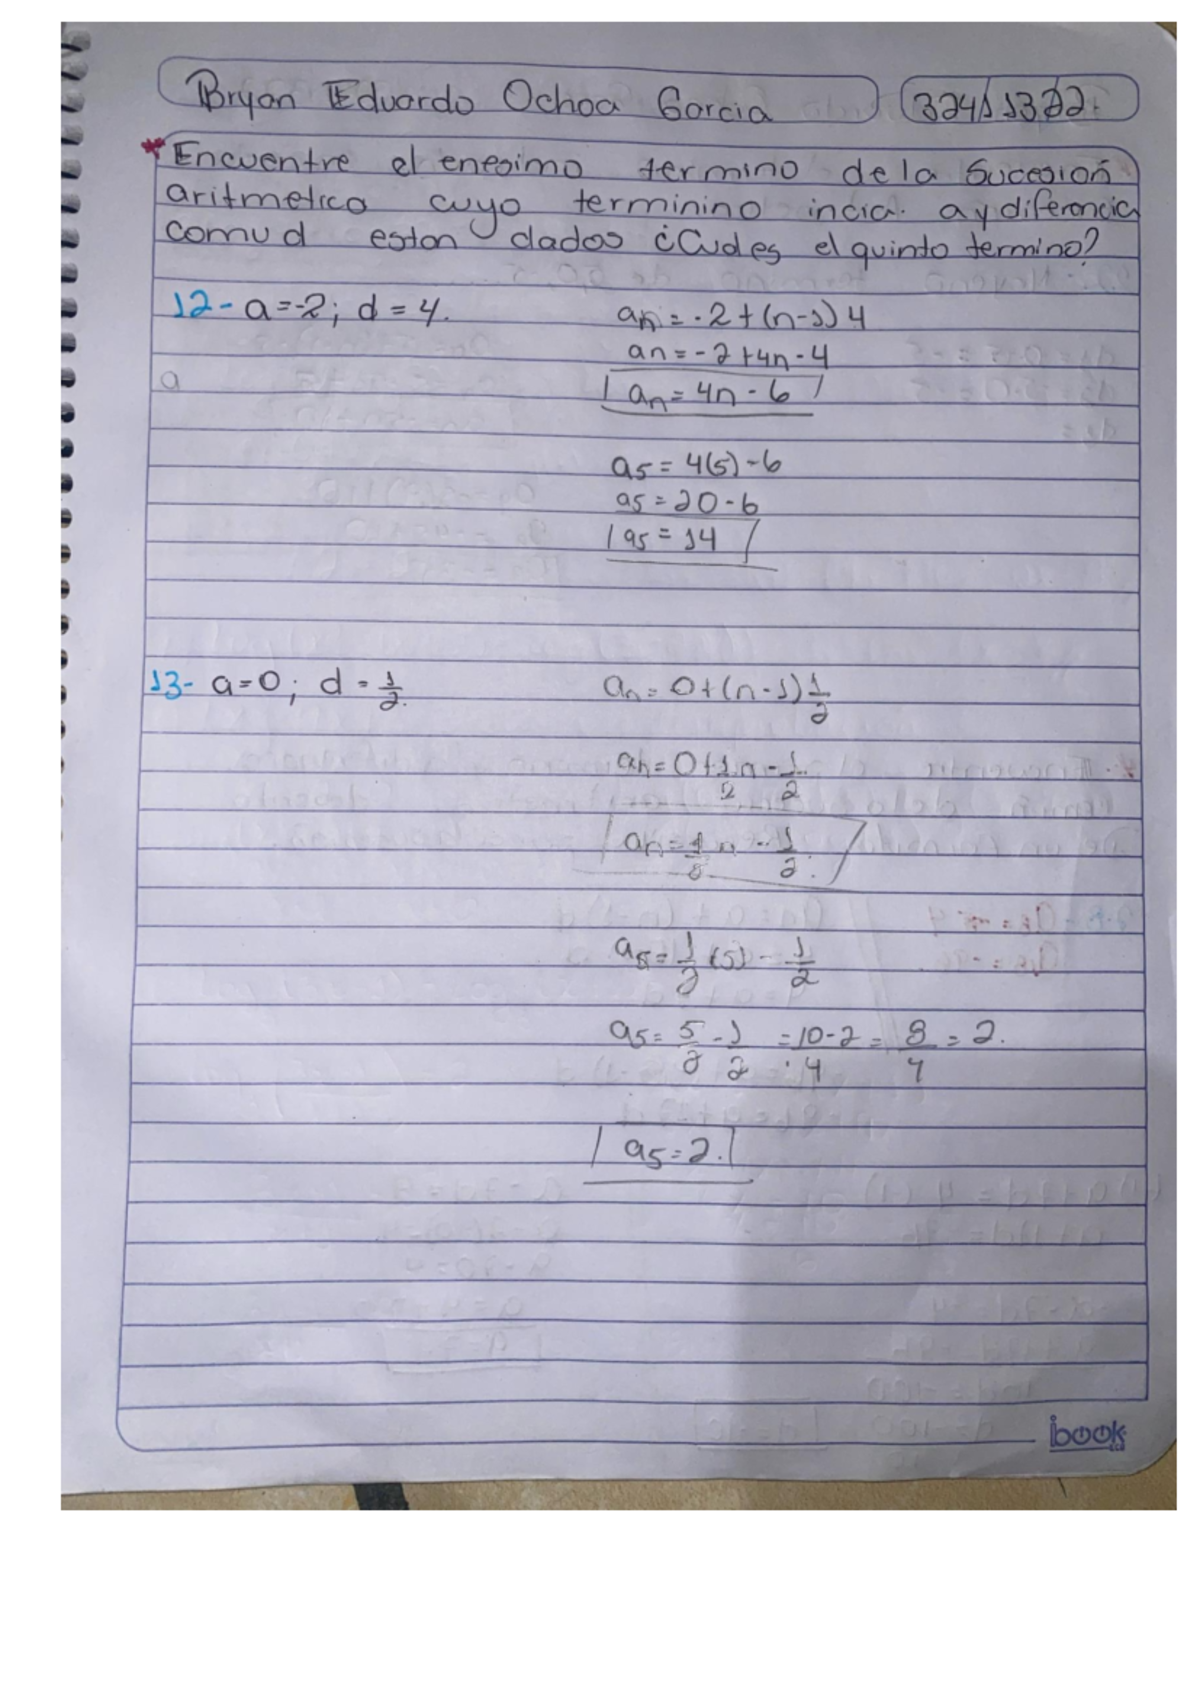 Bryan Eduardo Ochoa Garcia
* Encuentre el enesimo termino de la Sucesión
aritmetica cuyo terminino incia. a y diferencia
comud estan dados ¿Cudes el quinto termino?
12- a=-2; d=4.
an = -2+(n-1)4
an = -2+4n-4
an = 4n-6
a
a5 = 4(5)-6
a5 = 20-6
a5 = 14
13- a=0; d=1/2.
an = 0+(n-1)1/2
an = 0+1/2n-1/2
an = 1/2n-1/2.
a5 = 1/2(5)-1/2
a5 = 5/2-1/2 = 10-2/4 = 8/4 = 2.
a5=2.
ibook